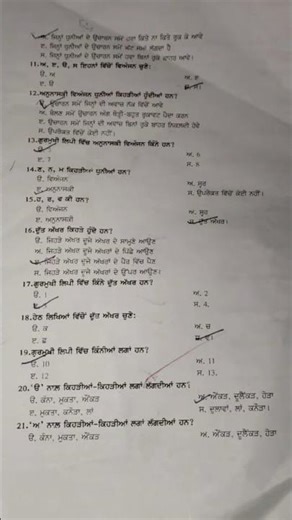 ਅ. ਜਿਨ੍ਹਾਂ ਧੁਨੀਆਂ ਦੇ ਉਚਾਰਨ ਸਮੇਂ ਹਵਾ ਕਿਤੇ ਨਾ ਕਿਤੇ ਰੁਕ ਕੇ ਆਵੇ
ੲ. ਜਿਨ੍ਹਾਂ ਧੁਨੀਆਂ ਦੇ ਉਚਾਰਨ ਸਮੇਂ ਘੱਟ ਸਮਾਂ ਲੱਗਦਾ ਹੈ
ਸ. ਜਿਨ੍ਹਾਂ ਧੁਨੀਆਂ ਦੇ ਉਚਾਰਨ ਸਮੇਂ ਹਵਾ ਬਿਨਾਂ ਰੁਕੇ ਬਾਹਰ ਆਵੇ।
11. ਅ, ੲ, ੳ, ਸ ਇਹਨਾਂ ਵਿੱਚੋਂ ਵਿਅੰਜਨ ਚੁਣੋ:
ੳ. ਅ ਅ. ੲ
ੲ. ੳ ਸ. ਸ।
12. ਅਨੁਨਾਸਕੀ ਵਿਅੰਜਨ ਧੁਨੀਆਂ ਕਿਹੜੀਆਂ ਹੁੰਦੀਆਂ ਹਨ?
ੳ. ਉਚਾਰਨ ਸਮੇਂ ਜਿਨ੍ਹਾਂ ਦੀ ਅਵਾਜ਼ ਨੱਕ ਵਿੱਚੋਂ ਆਵੇ
ਅ. ਬੋਲਣ ਸਮੇਂ ਉਚਾਰਨ ਅੰਗ ਥੋੜ੍ਹੀ-ਬਹੁਤ ਰੁਕਾਵਟ ਪੈਦਾ ਕਰਨ
ੲ. ਉਚਾਰਨ ਸਮੇਂ ਜਿਨ੍ਹਾਂ ਦੀ ਅਵਾਜ਼ ਬਿਨਾਂ ਰੁਕੇ ਬਾਹਰ ਨਿਕਲਦੀ ਹੋਵੇ
ਸ. ਉਪਰੋਕਤ ਵਿੱਚੋਂ ਕੋਈ ਨਹੀਂ।
13. ਗੁਰਮੁਖੀ ਲਿਪੀ ਵਿੱਚ ਅਨੁਨਾਸਕੀ ਵਿਅੰਜਨ ਕਿੰਨੇ ਹਨ?
ੳ. 5 ਅ. 6
ੲ. 7 ਸ. 8
14. ਣ, ਨ, ਮ ਕਿਹੜੀਆਂ ਧੁਨੀਆਂ ਹਨ?
ੳ. ਵਿਅੰਜਨ ਅ. ਸ੍ਵਰ
ੲ. ਅਨੁਨਾਸਕੀ ਸ. ਉਪਰੋਕਤ ਵਿੱਚੋਂ ਕੋਈ ਨਹੀਂ।
15. ਹ, ਰ, ਵ ਕੀ ਹਨ?
ੳ. ਵਿਅੰਜਨ ਅ. ਸ੍ਵਰ
ੲ. ਅਨੁਨਾਸਕੀ ਸ. ਦੁੱਤ ਅੱਖਰ।
16. ਦੁੱਤ ਅੱਖਰ ਕਿਹੜੇ ਹੁੰਦੇ ਹਨ?
ੳ. ਜਿਹੜੇ ਅੱਖਰ ਦੂਜੇ ਅੱਖਰਾਂ ਦੇ ਸਾਮ੍ਹਣੇ ਆਉਣ
ਅ. ਜਿਹੜੇ ਅੱਖਰ ਦੂਜੇ ਅੱਖਰਾਂ ਦੇ ਪਿੱਛੇ ਆਉਣ
ੲ. ਜਿਹੜੇ ਅੱਖਰ ਦੂਜੇ ਅੱਖਰਾਂ ਦੇ ਪੈਰ ਵਿੱਚ ਪੈਣ
ਸ. ਜਿਹੜੇ ਅੱਖਰ ਦੂਜੇ ਅੱਖਰਾਂ ਦੇ ਉੱਪਰ ਆਉਣ।
17. ਗੁਰਮੁਖੀ ਲਿਪੀ ਵਿੱਚ ਕਿੰਨੇ ਦੁੱਤ ਅੱਖਰ ਹਨ?
ੳ. 1 ਅ. 2
ੲ. ਸ. 4.
18. ਹੇਠ ਲਿਖਿਆਂ ਵਿੱਚੋਂ ਦੁੱਤ ਅੱਖਰ ਚੁਣੋ:
ੳ. ਕ ਅ. ਚ
ੲ. ਛ ਸ. ਵ।
19. ਗੁਰਮੁਖੀ ਲਿਪੀ ਵਿੱਚ ਕਿੰਨੀਆਂ ਲਗਾਂ ਹਨ?
ੳ. 10 ਅ. 11
ੲ. 12 ਸ. 13.
20. 'ੳ' ਨਾਲ ਕਿਹੜੀਆਂ-ਕਿਹੜੀਆਂ ਲਗਾਂ ਲੱਗਦੀਆਂ ਹਨ?
ੳ. ਕੰਨਾ, ਮੁਕਤਾ, ਔਂਕੜ ਅ. ਔਂਕੜ, ਦੁਲੈਂਕੜ, ਹੋੜਾ
ੲ. ਮੁਕਤਾ, ਕਨੌੜਾ, ਲਾਂ ਸ. ਦੁਲਾਵਾਂ, ਲਾਂ, ਕਨੌੜਾ।
21. 'ਅ' ਨਾਲ ਕਿਹੜੀਆਂ-ਕਿਹੜੀਆਂ ਲਗਾਂ ਲੱਗਦੀਆਂ ਹਨ?
ੳ. ਕੰਨਾ, ਮੁਕਤਾ, ਔਂਕੜ ਅ. ਔਂਕੜ, ਦੁਲੈਂਕੜ, ਹੋੜਾ